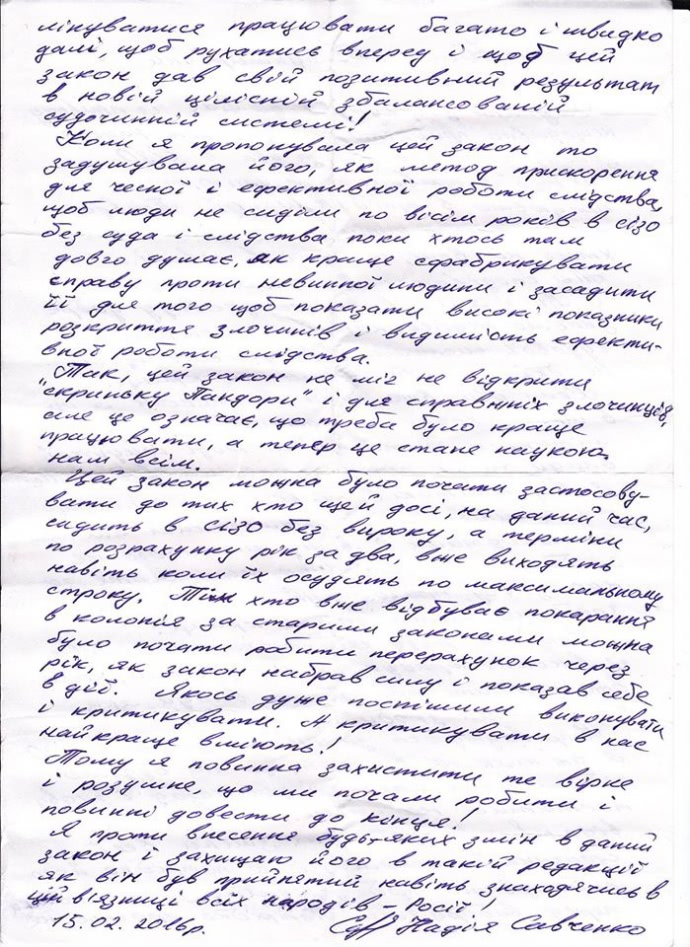 лінуватися працювати багато і швидко
далі, щоб рухатись вперед і щоб цей
закон дав свій позитивний результат
в новій цілісній збалансованій
судочинній системі!
Коли я пропонувала цей закон то
задушувала його, як метод прискорення
для чесної і ефективної роботи слідства,
щоб люди не сиділи по вісім років в сізо
без суда і слідства поки хтось там
довго думає, як краще сфабрикувати
справу проти невинної людини і засадити
її для того щоб показати високі показники
розкриття злочинів і видимість ефекти-
вної роботи слідства.
Так, цей закон не міг не відкрити
"скриньку Пандори" і для справжніх злочинців,
але це означає, що треба було краще
працювати, а тепер це стане наукою
нам всім.
Цей закон можна було почати застосову-
вати до тих хто щей досі, на даний час,
сидить в СІЗО без вироку, а терміни
по розрахунку рік за два, вже виходять
навіть коли їх осудять по максимальному
строку. Тим хто вже відбуває покарання
в колонія за старими законами можна
було почати робити перерахунок через
рік, як закон набрав силу і показав себе
в дії. Якось дуже поспішили виконувати
і критикувати. А критикувати в нас
найкраще вміють!
Тому я повинна захистити те вірне
і розумне, що ми почали робити і
повинні довести до кінця!
Я проти внесення будь-яких змін в даний
закон і захищаю його в такій редакції
як він був прийнятий навіть знаходячись в
цій в'язниці всіх народів - Росії!
15.02.2016р. Надія Савченко